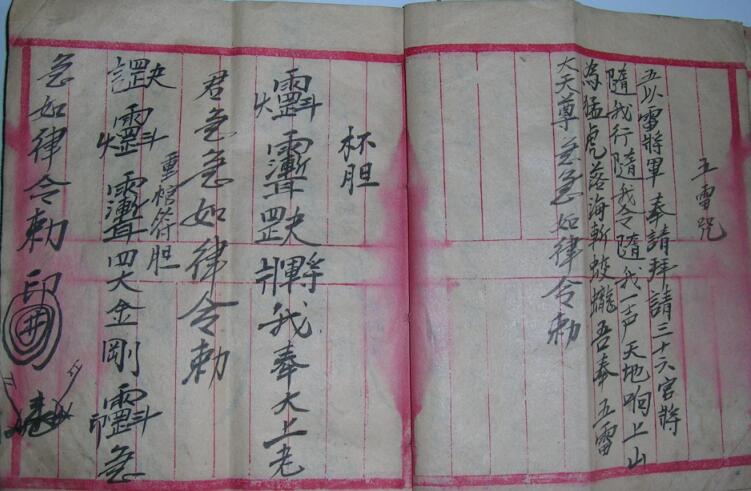 五雷咒
五以雷將軍 奉請拜請三十六官將
隨我行隨我令隨我一声天地响上山
為猛虎落海斬蛟蠬吾奉五雷
大天尊急急如律令勅
杯胆
我奉大上老
君急急如律令勅
重棺符胆
四大金剛 急
急如律令勅 印